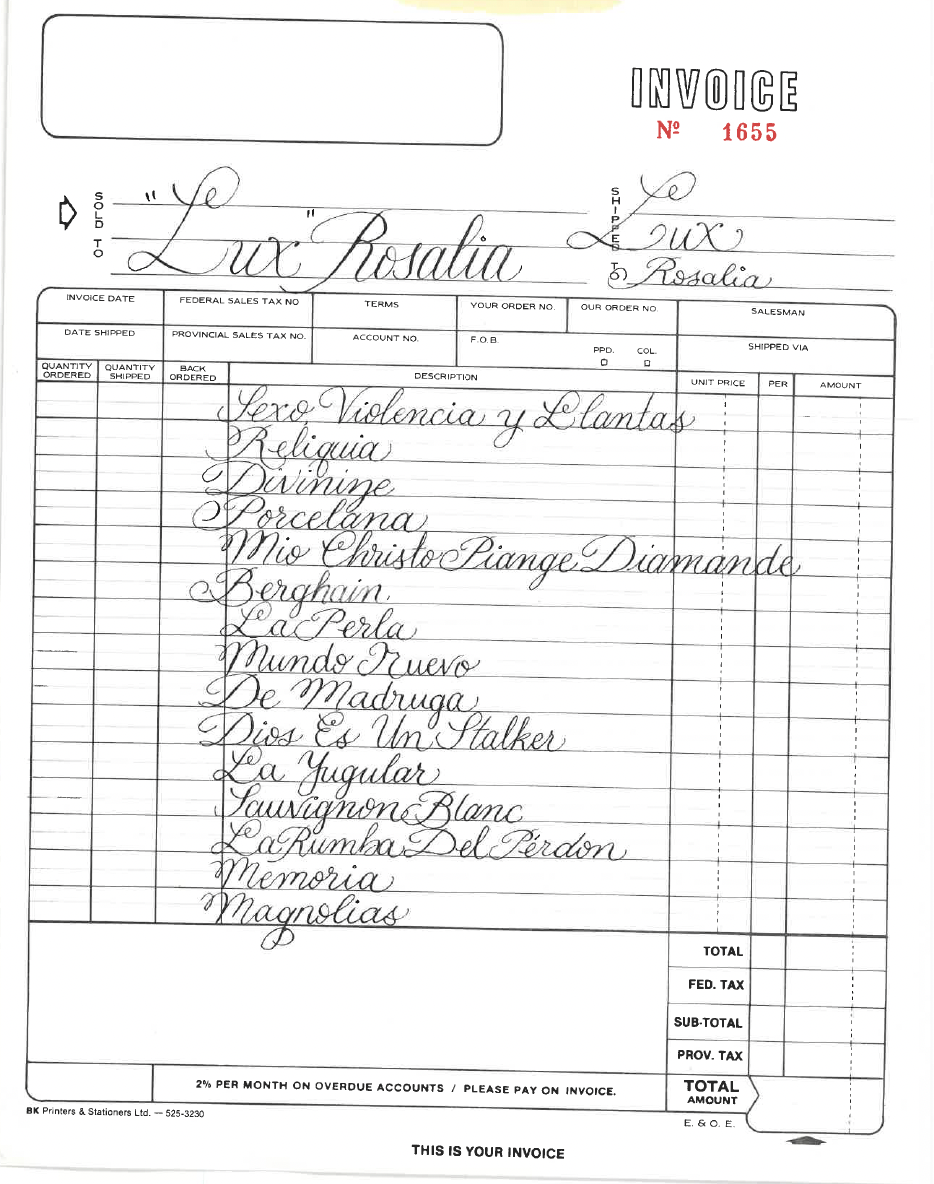 INVOICE
Nº 1655
SOLD TO
"Le
Lux" Rosalia
SHIPPED TO
Le
Lux
Rosalia
INVOICE DATE
FEDERAL SALES TAX NO
TERMS
YOUR ORDER NO.
OUR ORDER NO.
SALESMAN
DATE SHIPPED
PROVINCIAL SALES TAX NO.
ACCOUNT NO.
F.O.B.
PPD.
COL.
SHIPPED VIA
QUANTITY ORDERED
QUANTITY SHIPPED
BACK ORDERED
DESCRIPTION
UNIT PRICE
PER
AMOUNT
Sexo, Violencia y Llantas
Reliquia
Divinize
Porcelana
Mio Christo Piange Diamande
Berghain
La Perla
Mundo Nuevo
De Madruga
Dios Es Un Stalker
La Yugular
Sauvignon Blanc
La Rumba Del Pérdon
Memoria
Magnolias
TOTAL
FED. TAX
SUB-TOTAL
PROV. TAX
2% PER MONTH ON OVERDUE ACCOUNTS / PLEASE PAY ON INVOICE.
TOTAL AMOUNT
BK Printers & Stationers Ltd. — 525-3230
E. & O. E.
THIS IS YOUR INVOICE